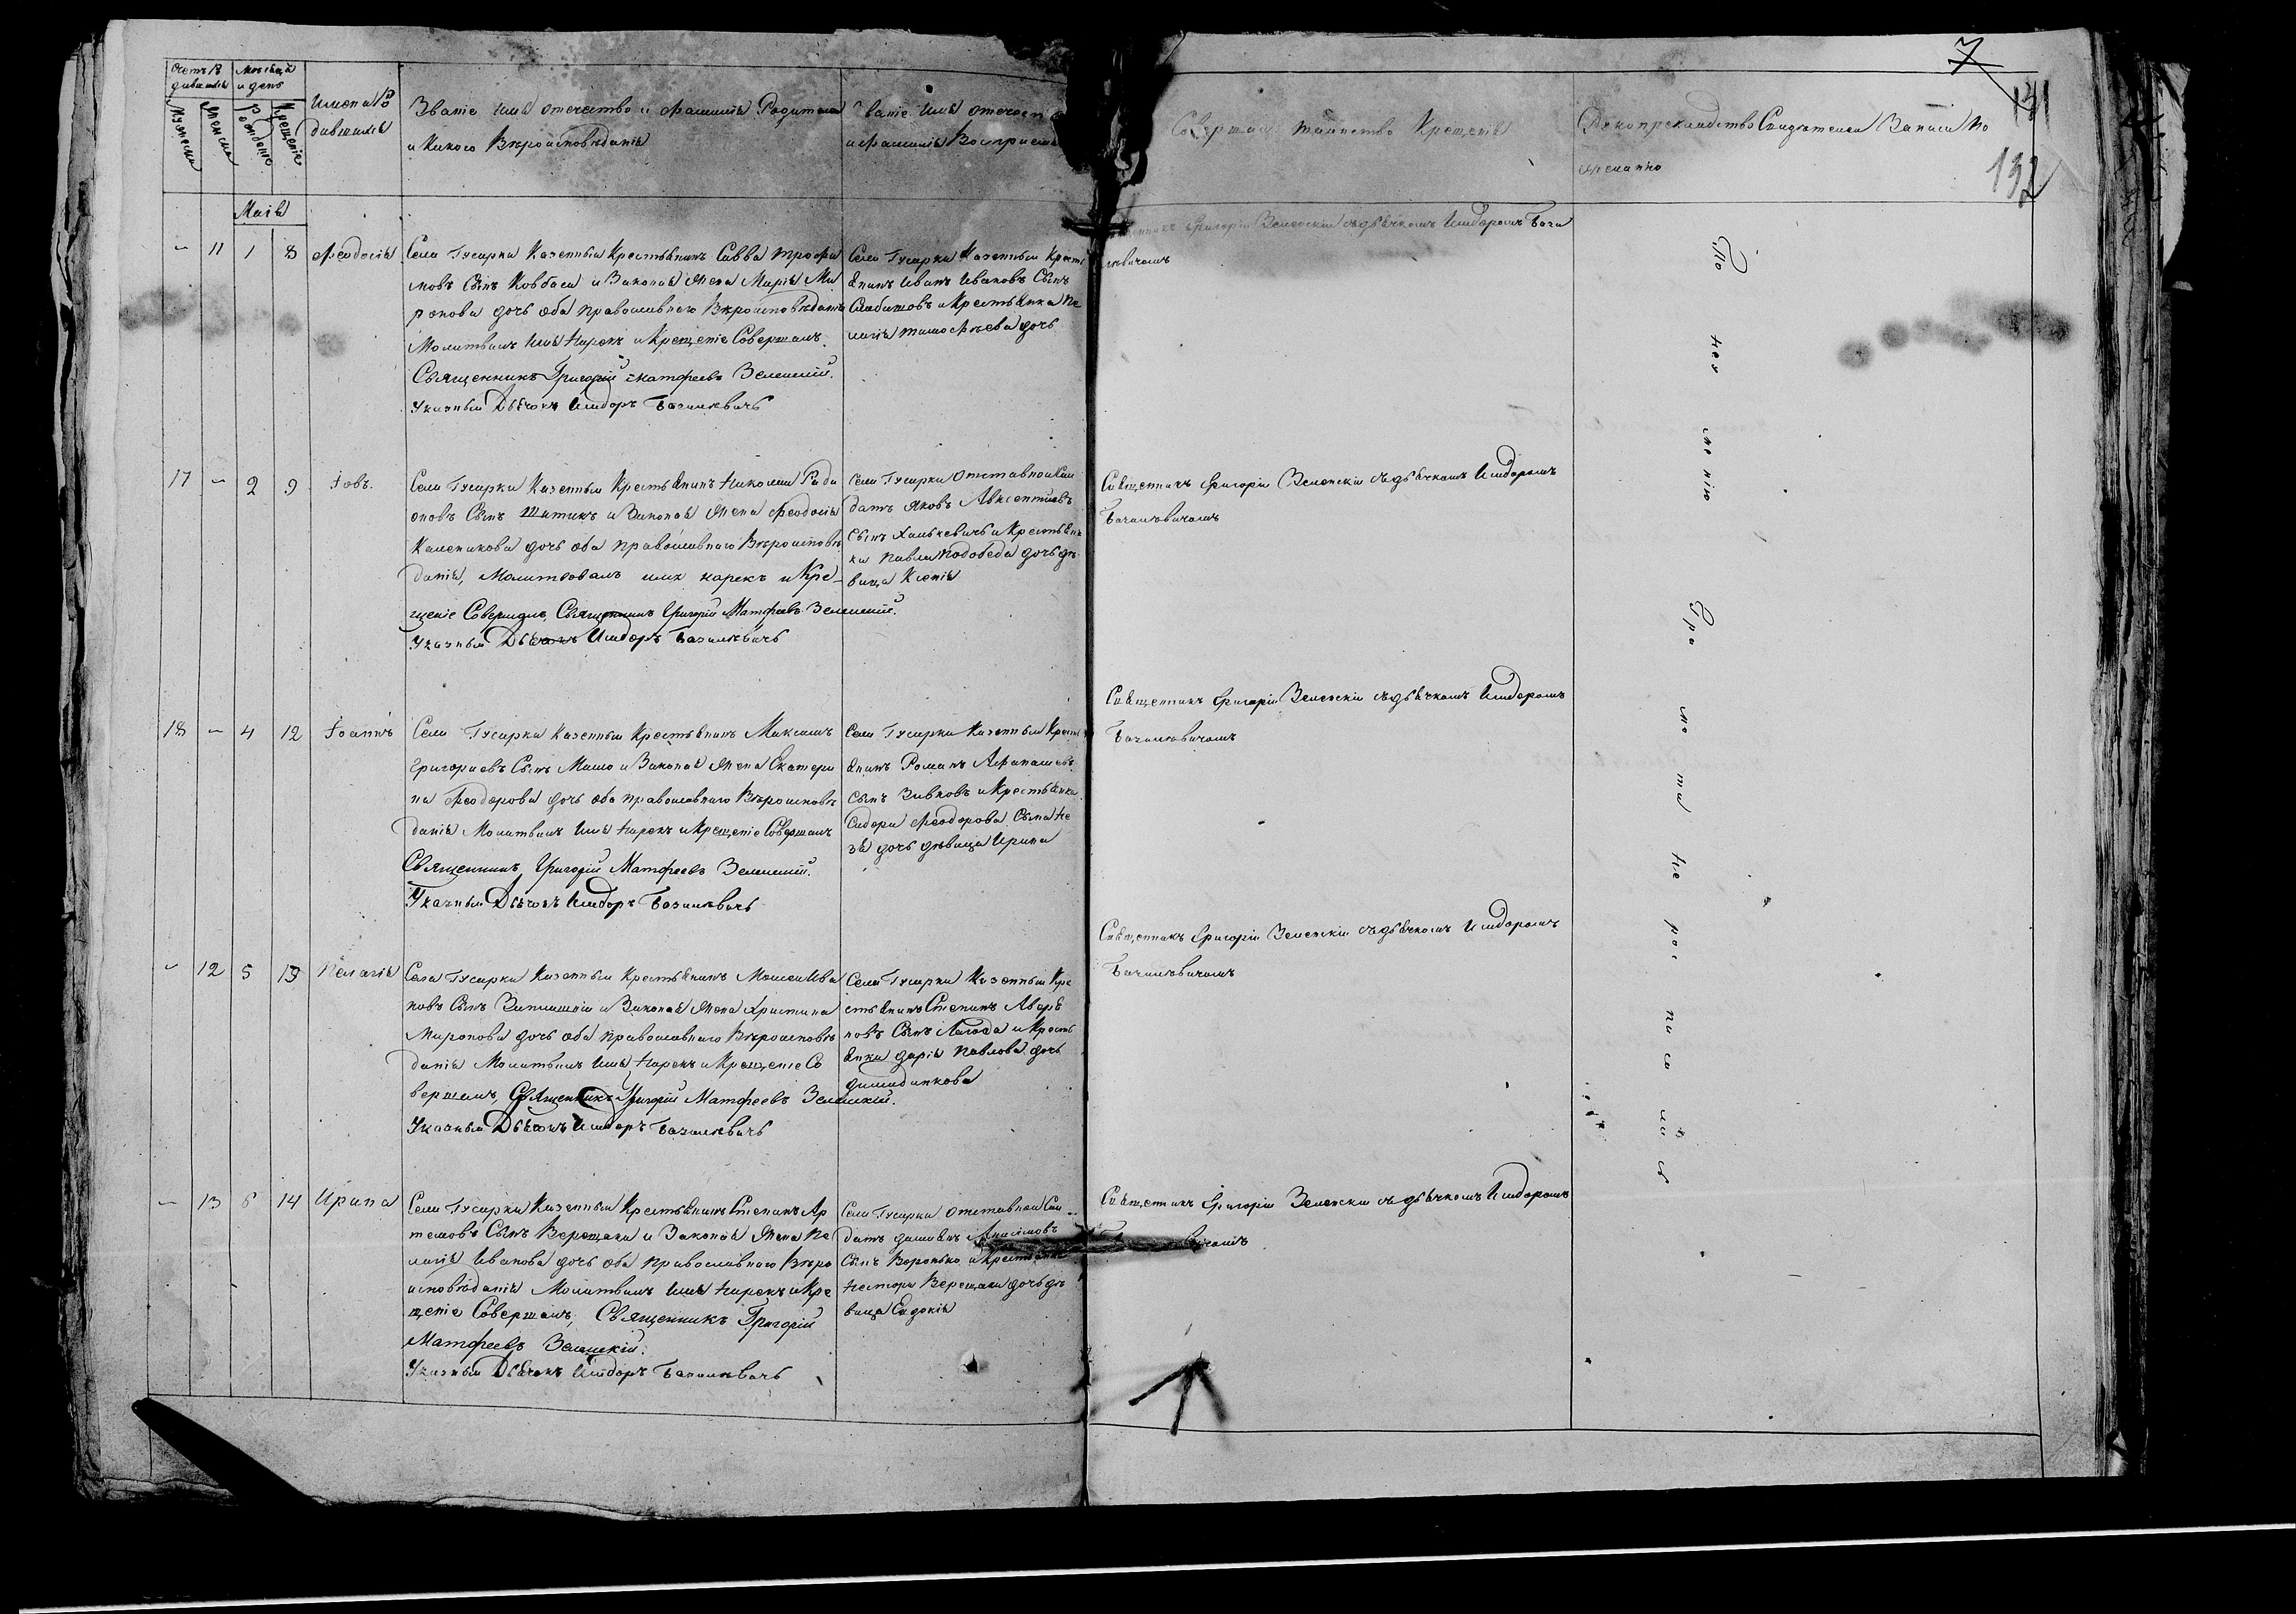 7
131
132
Счетъ Ро
дившихся
Мужеска
Женска
Месяцъ
и день
Рожденіе
Крещеніе
Имена Ро
дившихся
Званіе имя отечество и Фамилія Родителей
и Какого Вероисповѣданія
Званіе имя отечест
и Фамилія Воспріем
Совершалъ таинство Крещенія
Рукоприкладство Свидѣтелей Записи по
желанію
Маія
11 1 8 Феодосія
Села Гусарки Казенный Крестьянинъ Савва Трофи
мовъ Сынъ Ковбаса и Законая Жена Марія Ми
ронова дочь оба православнаго Вероисповѣданія
Молитвилъ Имя Нарекъ и Крещеніе Совершалъ
Священникъ Григорій Матфеевъ Зеленскій.
Указный Дьячокъ Исидоръ Базилевичь
Села Гусарки Казенный Кресть
янинъ Иванъ Ивановъ Сынъ
и Крестьянка Пе
лагія Тимофѣева дочь
Григорій Зеленскій съ дьячкомъ Исидоромъ Бази
левичомъ
17 2 9 Іовъ.
Села Гусарки Казенный Крестьянинъ Николай Роди
оновъ Сынъ Шитикъ и Законая Жена Феодосія
Каленикова дочь оба православнаго Вероисповѣ
данія, Молитвовалъ имя нарекъ и Кре-
щеніе Совершалъ, Священникъ Григорій Матфеевъ Зеленскій.
Указный Дьячокъ Исидоръ Базилевичь
Села Гусарки Отставной Сол
датъ Яковъ Авксентіевъ
Сынъ Халькевичь и Крестьян
ки Павла Подобеда дочь дѣ
вица Ксенія
Священникъ Григорій Зеленскій съ дьячкомъ Исидоромъ
Базилевичомъ
18 4 12 Іоаннъ
Села Гусарки Казенный Крестьянинъ Максимъ
Григорьевъ Сынъ Машо и Законая Жена Екатери
на Феодорова дочь оба православнаго Вероисповѣ
данія Молитвилъ Имя Нарекъ и Крещеніе Совершалъ
Священникъ, Григорій Матфеевъ Зеленскій.
Указный Дьячокъ Исидоръ Базилевичь
Села Гусарки Казенный Кресть
янинъ Романъ Афанасіевъ
Сынъ Зивковъ и Крестьянка
Сидора Феодорова Сына Не
зя дочь дѣвица Ирина
Священникъ Григорій Зеленскій съ дьячкомъ Исидоромъ
Базилевичомъ
12 5 13 Пелагія
Села Гусарки Казенный Крестьянинъ Моисей Ива
новъ Сынъ и Законая Жена Христина
Миронова дочь оба православнаго Вероисповѣ
данія Молитвилъ Имя Нарекъ и Крещеніе Со
вершалъ, Священникъ Григорій Матфеевъ Зеленскій.
Указный Дьячокъ Исидоръ Базилевичь
Села Гусарки Казенный Кре
стьянинъ Степанъ Аверя
новъ Сынъ Лагода и Кресть
янка Дарія Павлова дочь
Священникъ Григорій Зеленскій съ дьячкомъ Исидоромъ
Базилевичомъ
13 6 14 Ирина
Села Гусарки Казенный Крестьянинъ Степанъ Ар
темовъ Сынъ Верещака и Законая Жена Пе
лагія Иванова дочь оба православнаго Веро
исповѣданія Молитвилъ Имя Нарекъ и Кре
щеніе Совершалъ, Священникъ Григорій
Матфеевъ Зеленскій.
Указный Дьячокъ Исидоръ Базилевичь
Села Гусарки Отставной Сол
датъ Демянъ Анисимовъ
Сынъ Воронько и Крестьянина
Нестора Верещаки дочь дѣ
вица Евдокія
Священникъ Григорій Зеленскій съ дьячкомъ Исидоромъ
вичомъ